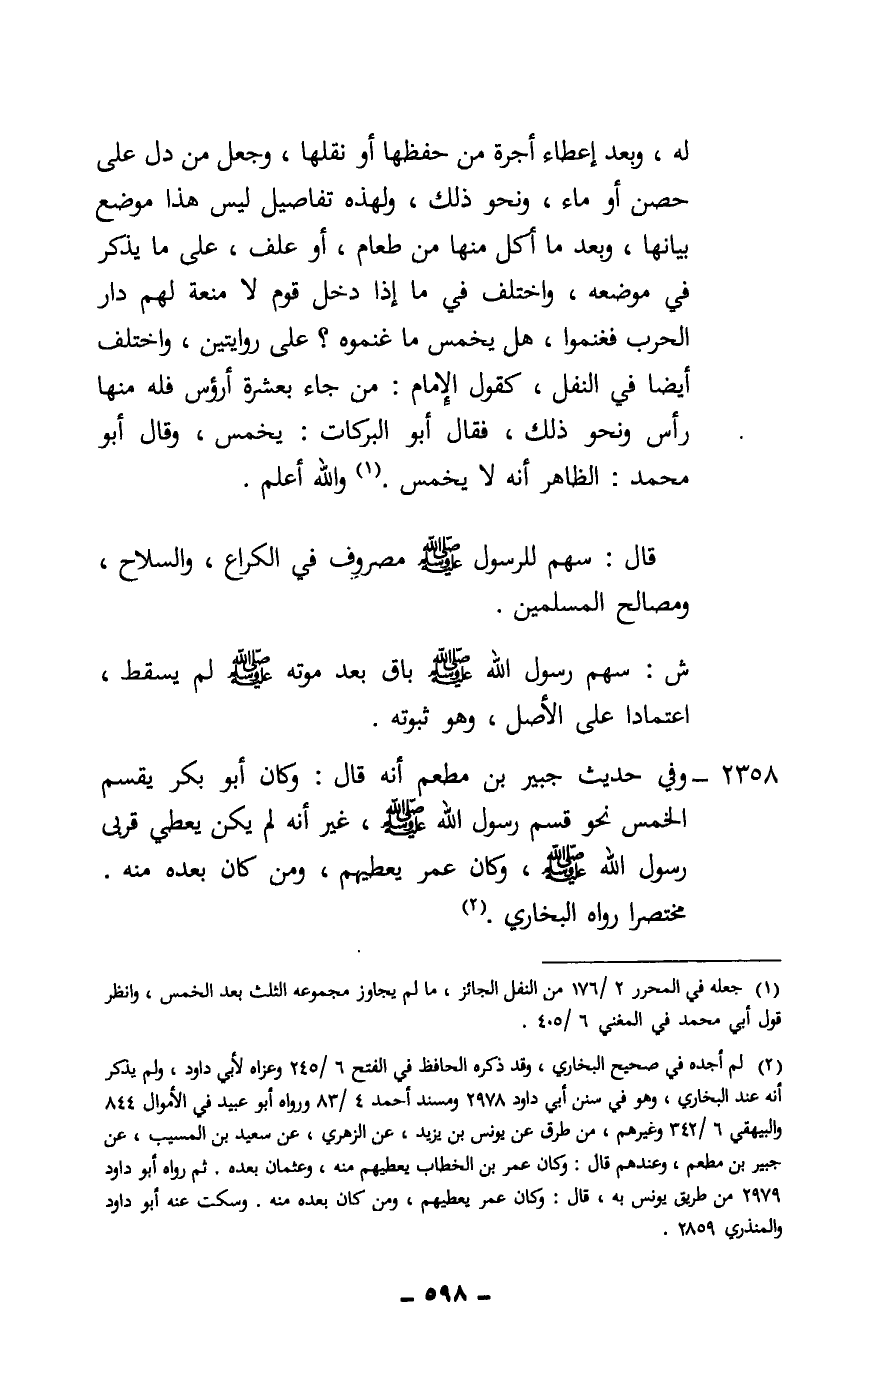 له ، وبعد إعطاء أجرة من حفظها أو نقلها ، وجعل من دل على
حصن أو ماء ، ونحو ذلك ، ولهذه تفاصيل ليس هذا موضع
بيانها ، وبعد ما أكل منها من طعام ، أو علف ، على ما يذكر
في موضعه ، واختلف في ما إذا دخل قوم لا منعة لهم دار
الحرب فغنموا ، هل يخمس ما غنموه ؟ على روايتين ، واختلف
أيضا في النفل ، كقول الإمام : من جاء بعشرة أرؤس فله منها
رأس ونحو ذلك ، فقال أبو البركات : يخمس ، وقال أبو
محمد : الظاهر أنه لا يخمس .(١) والله أعلم .
قال : سهم للرسول ﷺ مصروف في الكراع ، والسلاح ،
ومصالح المسلمين .
ش : سهم رسول الله ﷺ باق بعد موته ﷺ لم يسقط ،
اعتمادا على الأصل ، وهو ثبوته .
٢٣٥٨ ــ وفي حديث جبير بن مطعم أنه قال : وكان أبو بكر يقسم
الخمس نحو قسم رسول الله ﷺ ، غير أنه لم يكن يعطي قربى
رسول الله ﷺ ، وكان عمر يعطيهم ، ومن كان بعده منه .
مختصرا رواه البخاري .(٢)
(١) جعله في المحرر ٢ /١٧٦ من النفل الجائز ، ما لم يجاوز مجموعه الثلث بعد الخمس ، وانظر
قول أبي محمد في المغني ٦ /٤٠٥ .
(٢) لم أجده في صحيح البخاري ، وقد ذكره الحافظ في الفتح ٦ /٢٤٥ وعزاه لأبي داود ، ولم يذكر
أنه عند البخاري ، وهو في سنن أبي داود ٢٩٧٨ ومسند أحمد ٤ /٨٣ ورواه أبو عبيد في الأموال ٨٤٤
والبيهقي ٦ /٣٤٢ وغيرهم ، من طرق عن يونس بن يزيد ، عن الزهري ، عن سعيد بن المسيب ، عن
جبير بن مطعم ، وعندهم قال : وكان عمر بن الخطاب يعطيهم منه ، وعثمان بعده . ثم رواه أبو داود
٢٩٧٩ من طريق يونس به ، قال : وكان عمر يعطيهم ، ومن كان بعده منه . وسكت عنه أبو داود
والمنذري ٢٨٥٩ .
ــ ٥٩٨ ــ